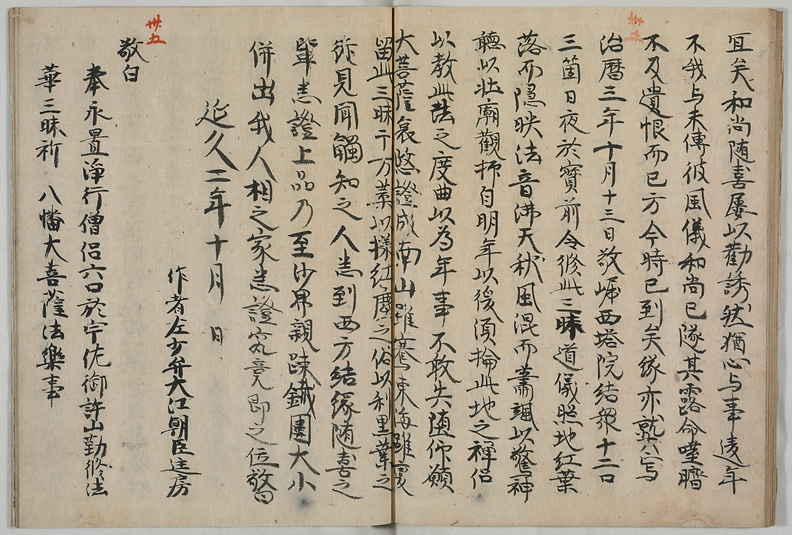 宜矣和尚随喜屡以勸誘然猶心与事違年
不我与未傳彼風儀和尚已隧其露命噬臍
不及遺恨而已方今時已到矣緣亦就寫
治曆三年十月十三日敬㠯西塔院結衆十二口
三箇日夜於寶前令修此三昧道儀照地紅葉
落而隠映法音沸天秋風混而蕭颯以驚神
聽以壮廟觀抑自明年以後須掄此地之禅侶
以教此法之度曲以為年事不敢失堕仰願
大菩薩哀愍證成南山雖騫東海雖変
留此三昧千万葉以撲紅塵之俗以利黒業之
衆見聞觸知之人共到西方結緣随喜之
輩共證上品乃至沙界親踈鐵圍大小
併出我人相之家共證究竟即之位敬白
延久二年十月 日
作者左少弁大江朝臣匡房
卅五
敬白
奉永置淨行僧侶六口於宇佐御許山勤修法
華三昧祈 八幡大菩薩法樂事